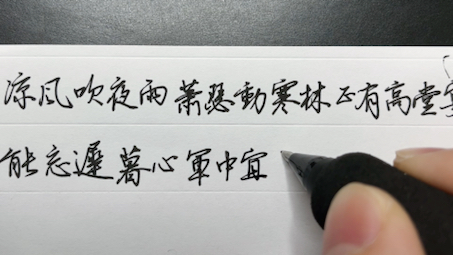 凉风吹夜雨萧瑟動寒林正有高堂宴
能忘遲暮心軍中宜